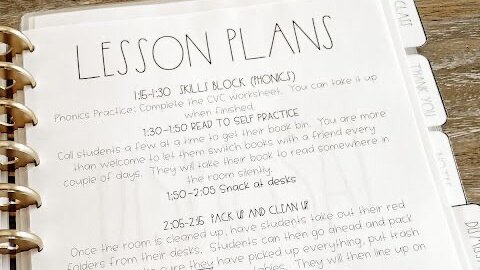 LESSON PLANS
1:15-1:30 SKILLS BLOCK (PHONICS)
Phonics Practice: Complete the CVC worksheet. You can take it up
when finished.
1:30-1:50 READ TO SELF PRACTICE
Call students a few at a time to get their book bin. You are more
than welcome to let them switch books with a friend every
couple of days. They will take their book to read somewhere in
the room silently.
1:50-2:05 Snack at desks
2:05-2:15 PACK UP AND CLEAN UP
Once the room is cleaned up, have students take out their red
folders from their desks. Students can then go ahead and pack
sure they have picked up everything, put trash
They will then line up on
CLASS
THANK YOU